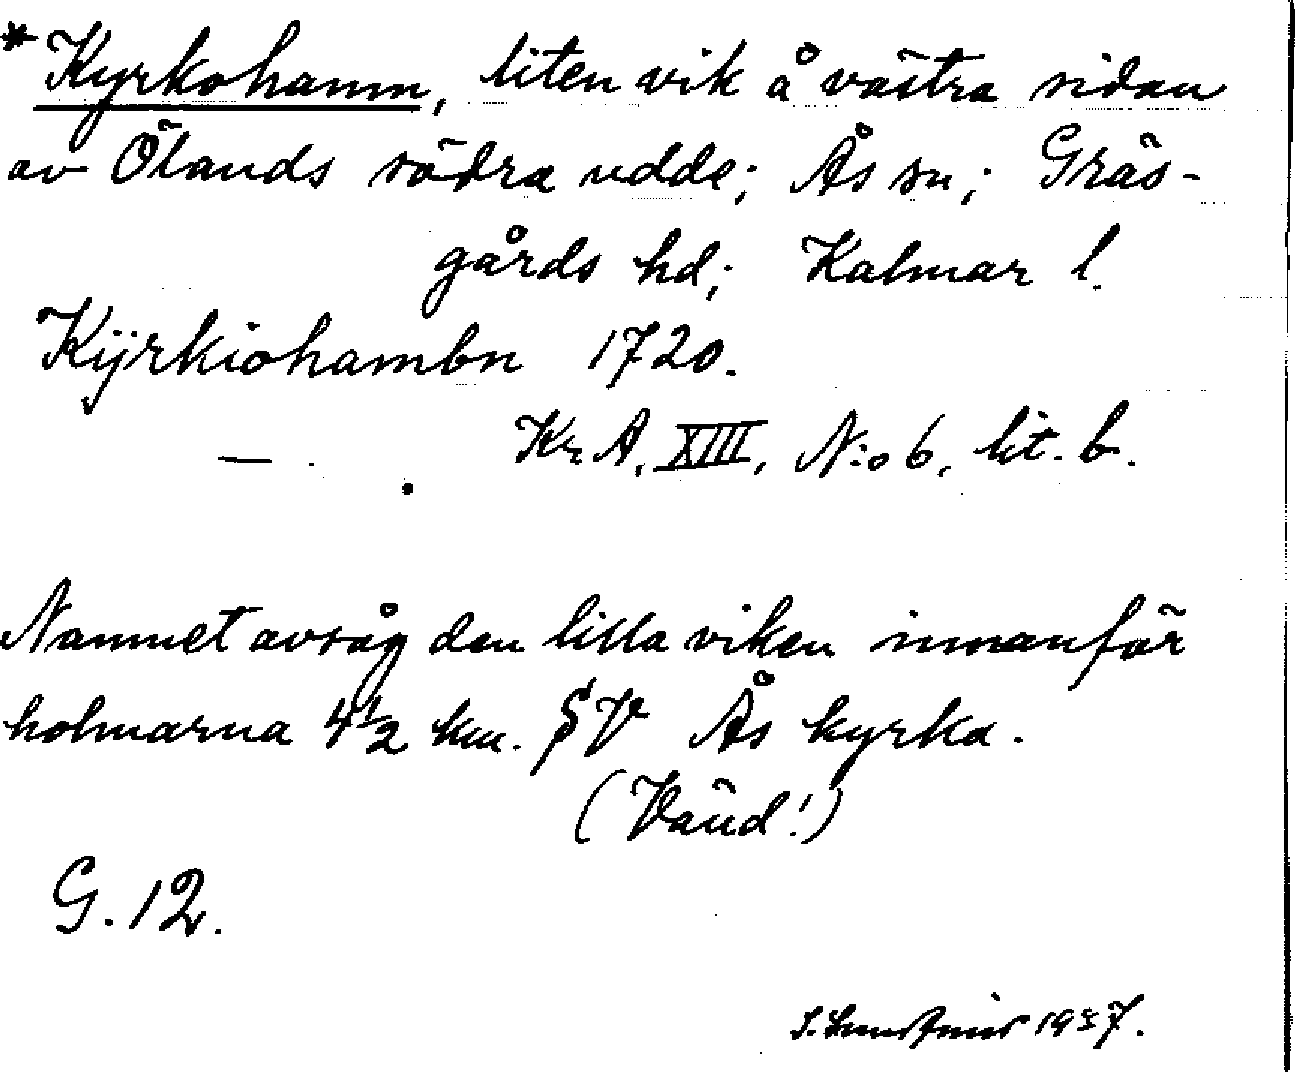 * Kyrkohamn, liten vik å västra sidan
av Ölands södra udde; Ås sn; Gräs-
gårds hd; Kalmar l.
Kÿrkiohambn 1720.
— . Kr. A. XIII, N:o 6, lit. b.
Namnet avsåg den lilla viken innanför
holmarna 4½ km. SV Ås kyrka.
(Vänd!)
G. 12.